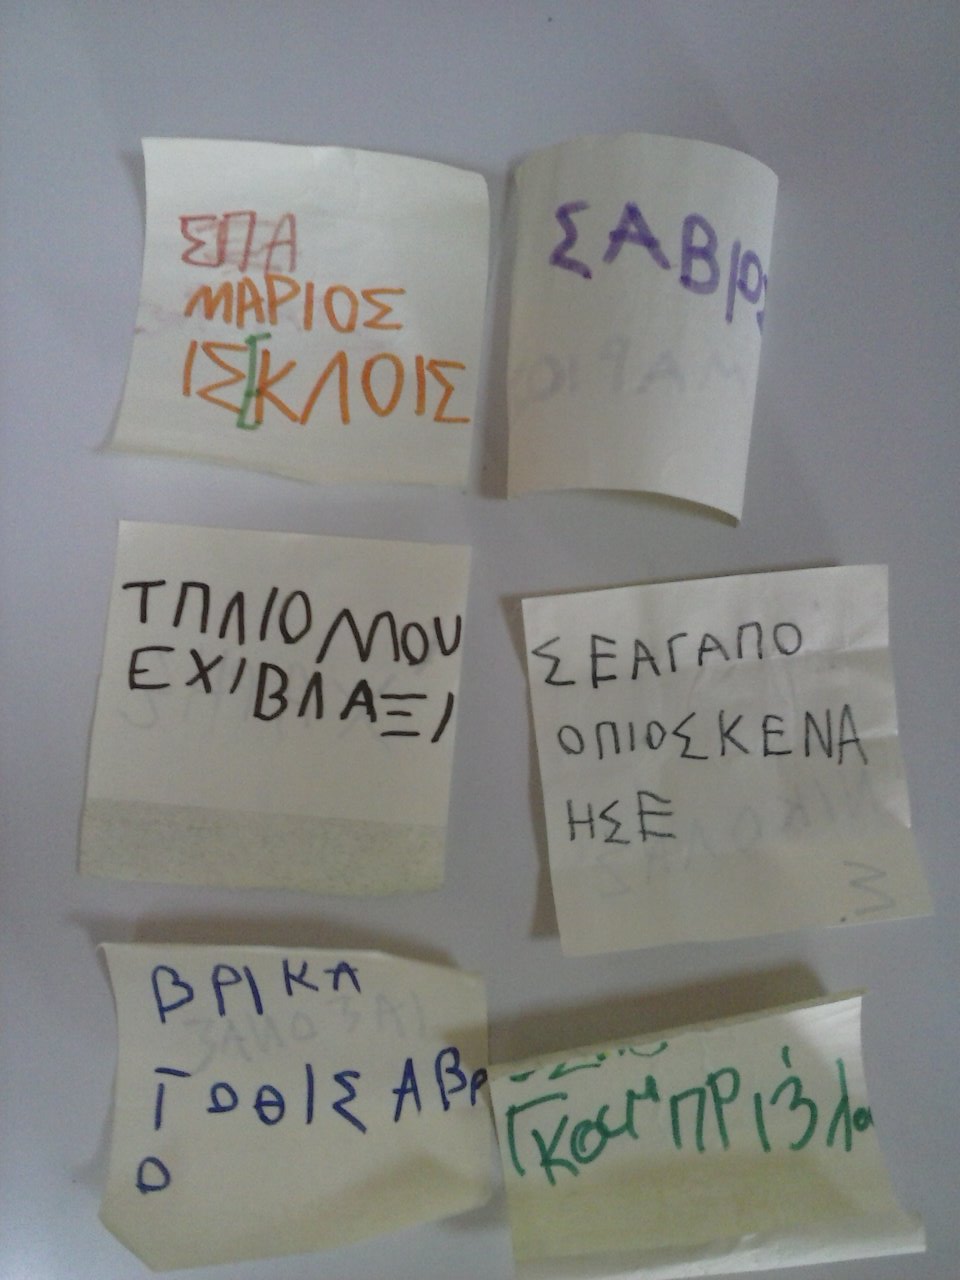 ΣΠΑ
ΜΑΡΙΟΣ
ΙΣΚΛΟΙΣ
ΣΑΒΙΟ
ΤΠΛΙΟ ΜΟΥ
ΕΧΙΒΛΑΞΙ
ΣΕΑΓΑΠΟ
ΟΠΙΟΣΚΕΝΑ
ΗΣΕ
ΒΡΙΚΑ
ΤΟΘΙΣΑΒΡ
Ο
ΓΚΟΥΜΠΡΙΞΛΑ